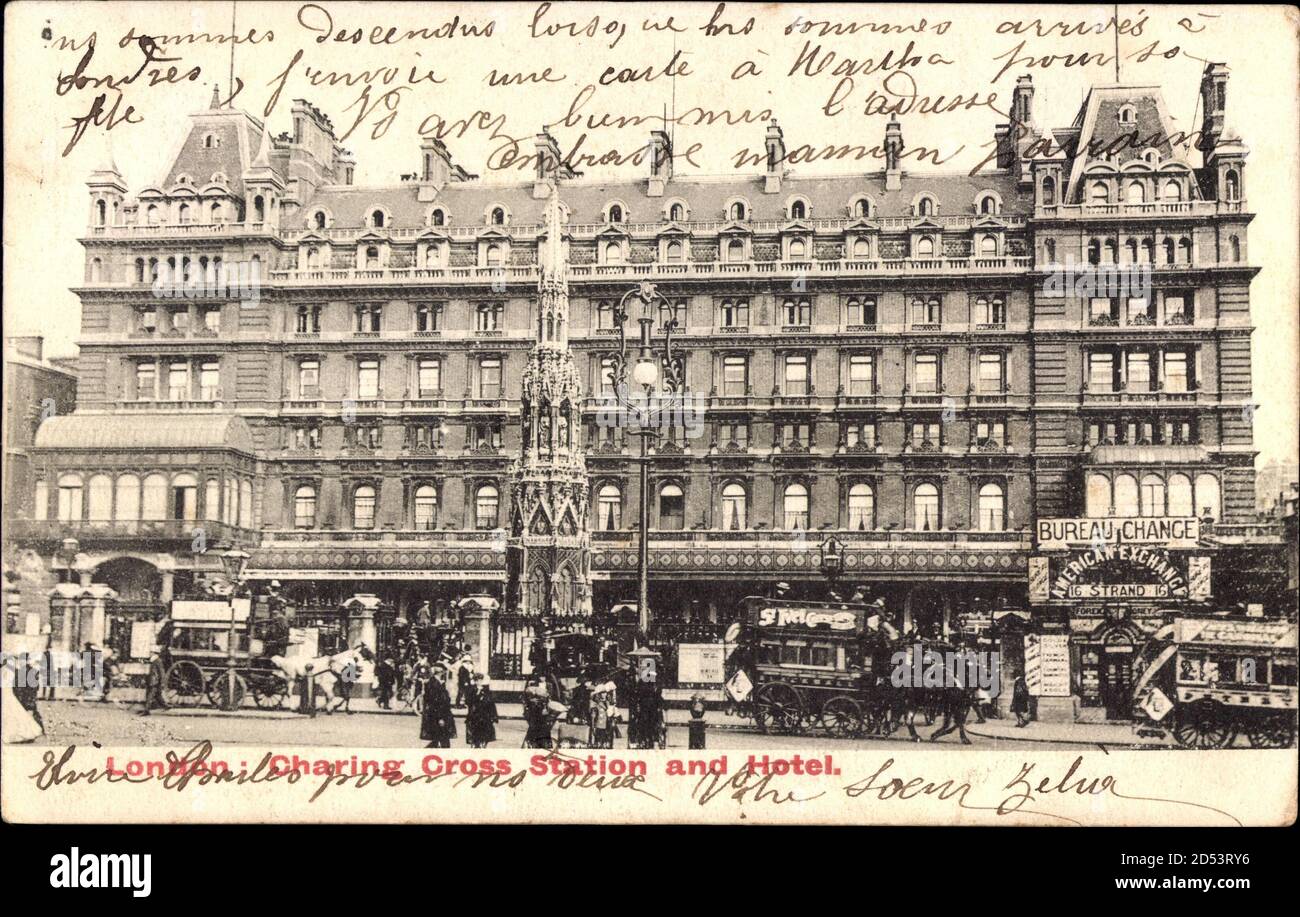 ns sommes descendus lorsque ns sommes arrivés à
Londres j'envoie une carte à Martha pour sa
fête Vs avez bien mis l'adresse
Embrasse maman
BUREAU·CHANGE
AMERICAN·EXCHANGE
16 STRAND 16
FOREIGN MONEY
London: Charing Cross Station and Hotel.
pour ns deux Votre Soeur Zelia
alamy
Image ID: 2D53RY6
www.alamy.com